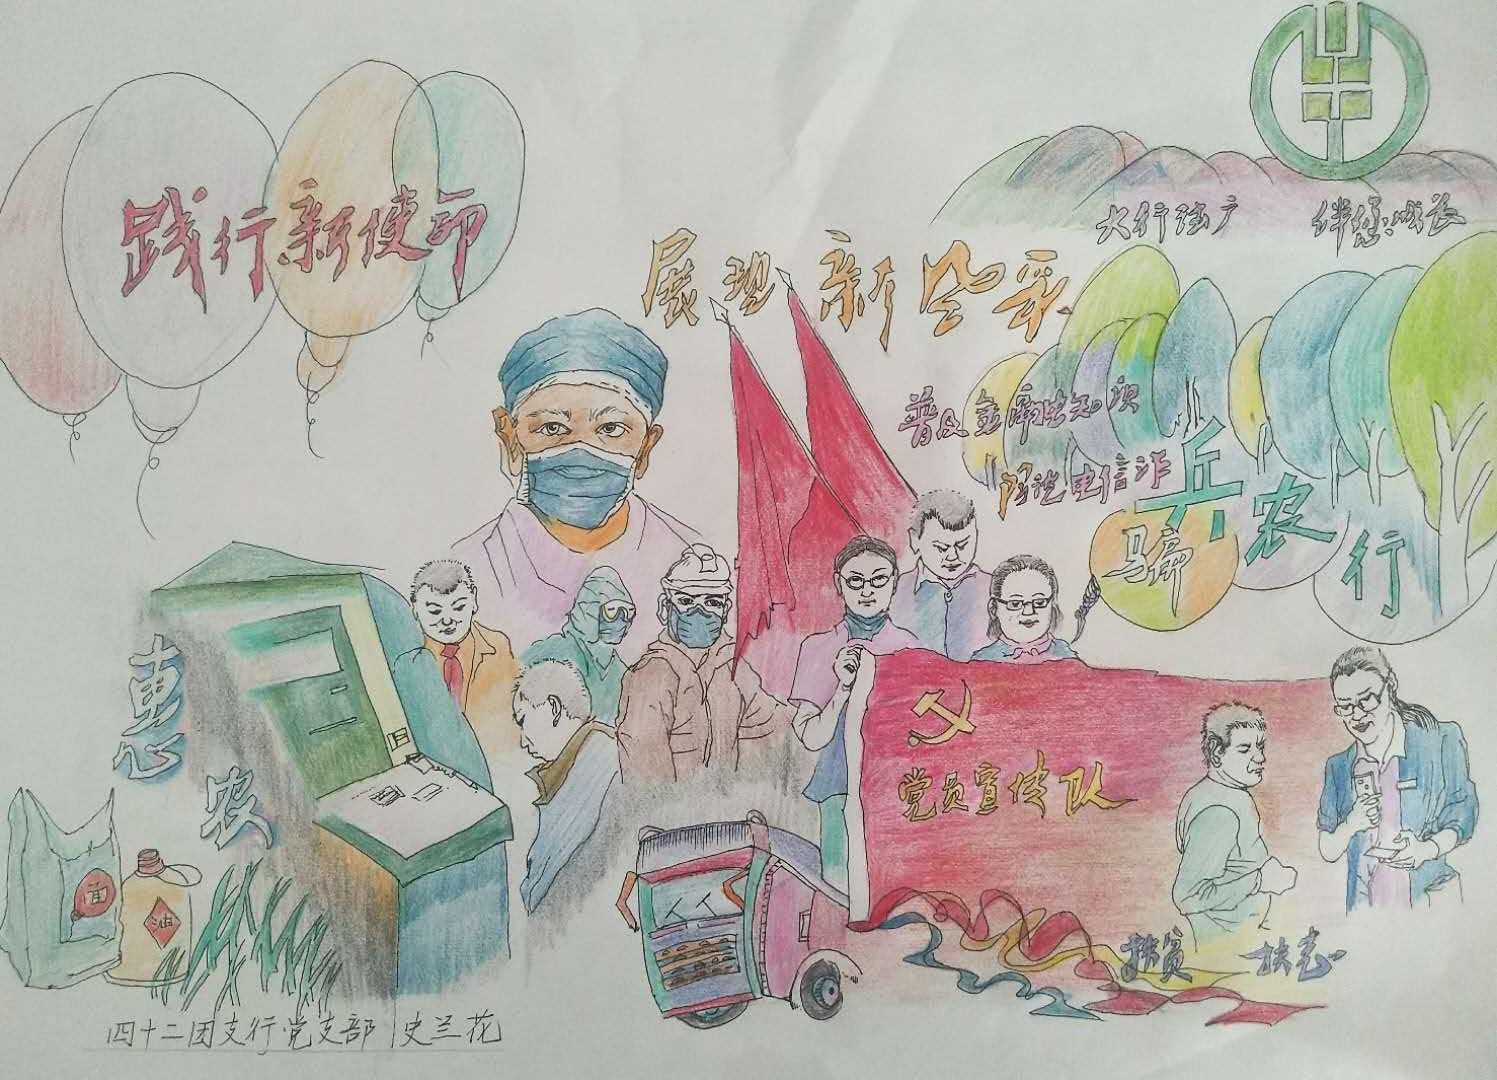 践行新使命
展现新风采
大行德广 伴您成长
普及金融知识
防范电信诈
骗
兵农行
惠
农
面
油
党员宣传队
扶贫 扶志
四十二团支行党支部 史兰花